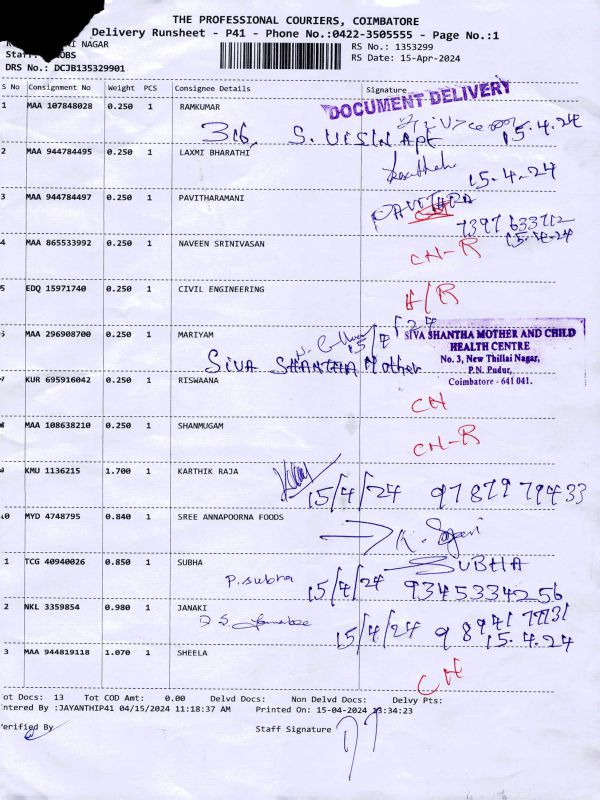 THE PROFESSIONAL COURIERS, COIMBATORE
Delivery Runsheet - P41 - Phone No.:0422-3505555 - Page No.:1
NAGAR
RS No.: 1353299
Staff:
RS Date: 15-Apr-2024
DRS No.: DCJB135329901
S No Consignment No Weight PCS Consignee Details Signature
DOCUMENT DELIVERY
1 MAA 107848028 0.250 1 RAMKUMAR
15.4.24
2 MAA 944784495 0.250 1 LAXMI BHARATHI
15.4.24
3 MAA 944784497 0.250 1 PAVITHARAMANI PAVITHRA
CH
7397633712
15.4.24
4 MAA 865533992 0.250 1 NAVEEN SRINIVASAN
CN-R
5 EDQ 15971740 0.250 1 CIVIL ENGINEERING
H/R
MAA 296908700 0.250 1 MARIYAM
15/4/24
SIVA SHANTHA MOTHER AND CHILD
HEALTH CENTRE
No. 3, New Thillai Nagar,
P.N. Pudur,
Coimbatore - 641 041.
SIVA SHANTHA Mother
7 KUR 695916042 0.250 1 RISWAANA
CH
8 MAA 108638210 0.250 1 SHANMUGAM
CN-R
9 KMU 1136215 1.700 1 KARTHIK RAJA
15/4/24 9787979433
10 MYD 4748795 0.840 1 SREE ANNAPOORNA FOODS
1 TCG 40940026 0.850 1 SUBHA SUBHA
P. Subha 15/4/24 9345334256
2 NKL 3359854 0.980 1 JANAKI
15/4/24
15.4.24
3 MAA 944819118 1.070 1 SHEELA
CH
ot Docs: 13 Tot COD Amt: 0.00 Delvd Docs: Non Delvd Docs: Delvy Pts:
ntered By :JAYANTHIP41 04/15/2024 11:18:37 AM Printed On: 15-04-2024 13:34:23
erified By Staff Signature